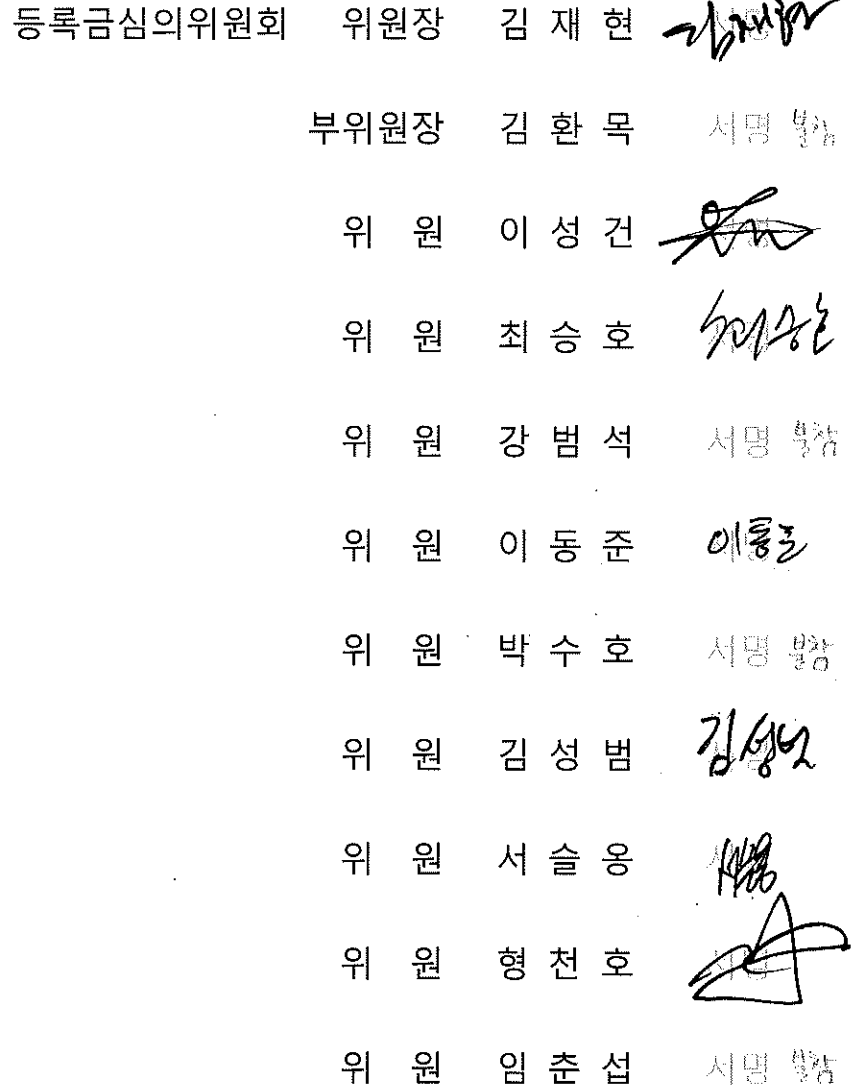 등록금심의위원회 위원장 김 재 현 김재현
부위원장 김 환 목 서명 불참
위 원 이 성 건
위 원 최 승 호 최승호
위 원 강 범 석 서명 불참
위 원 이 동 준 이동준
위 원 박 수 호 서명 불참
위 원 김 성 범 김성범
위 원 서 슬 옹
위 원 형 천 호
위 원 임 춘 섭 서명 불참